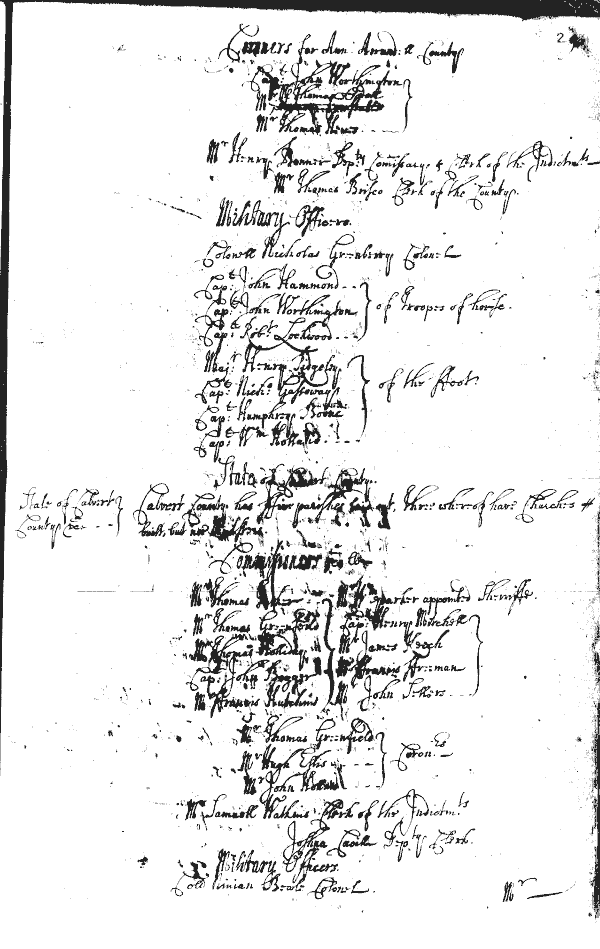 2
Coroners for Ann Arundell County
Capt: John Worthington
Mr Thomas
Mr Thomas
Mr Henry Bonner Depty Comissary & Clerk of the Indictmts
Mr Thomas Brisco Clerk of the County.
Military Officers.
Colonell Nicholas Greenberry Colonel
Capt: John Hammond
Capt: John Worthington
Capt: Robt: Lockwood
of troopes of horse.
Majr: Henry Ridgely
Capt: Nichs: Gassaway
Capt: Humphrey Boone
Capt: Wm Holland
of the ffoot.
State of Calvert County.
State of Calvert
County
Calvert County has ffive parishes laid out, three whereof have Churches
built, but
Commissioners
Mr Thomas
Mr Thomas Greenfield
Mr Thomas Holliday
Capt: John Bigger
Mr ffrancis Hutchins
Mr Wm parker appointed Sherriffe.
Capt: Henry Mitchell
Mr James Keech
Mr ffrancis ffreeman
Mr John
Mr Thomas Greenfield
Mr Hugh Ellis
Mr John
Coronrs
Mr Samuell Watkins Clerk of the Indictmts
Joshua Cecill Depty Clerk.
Military Officers.
Coll Ninian Beale Colonel.
Mr